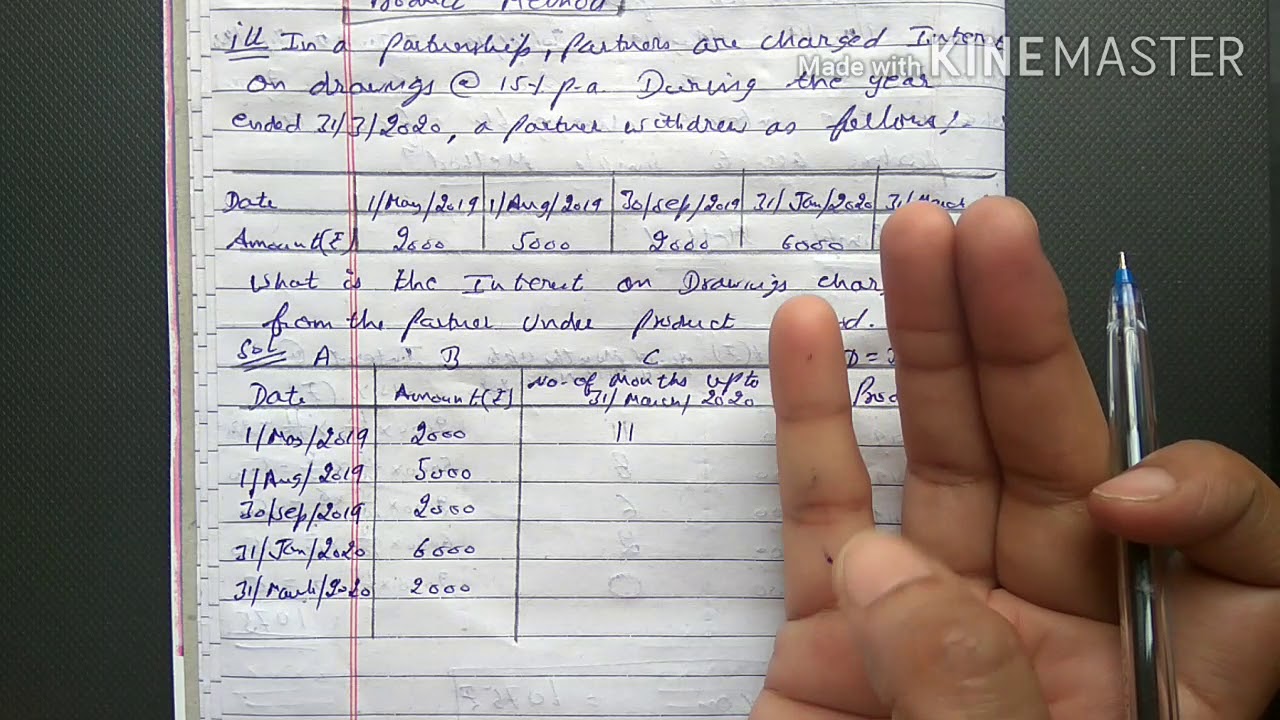 Product Method
ill In a partnership, partners are charged Inter
Made with KINEMASTER
On drawings @ 15% p.a. During the year
ended 31/3/2020, a partner withdrew as follows:-
Date 1/May/2019 1/Aug/2019 30/sep/2019 31/Jan/2020 31/March
Amount(₹) 2000 5000 2000 6000
What is the Interest on Drawings char
from the partner under product d.
Sol. A B C D =
Date Amount(₹) No. of months upto 31/March/2020 Pro
1/May/2019 2000 11
1/Aug/2019 5000
30/sep/2019 2000
31/Jan/2020 6000
31/March/2020 2000